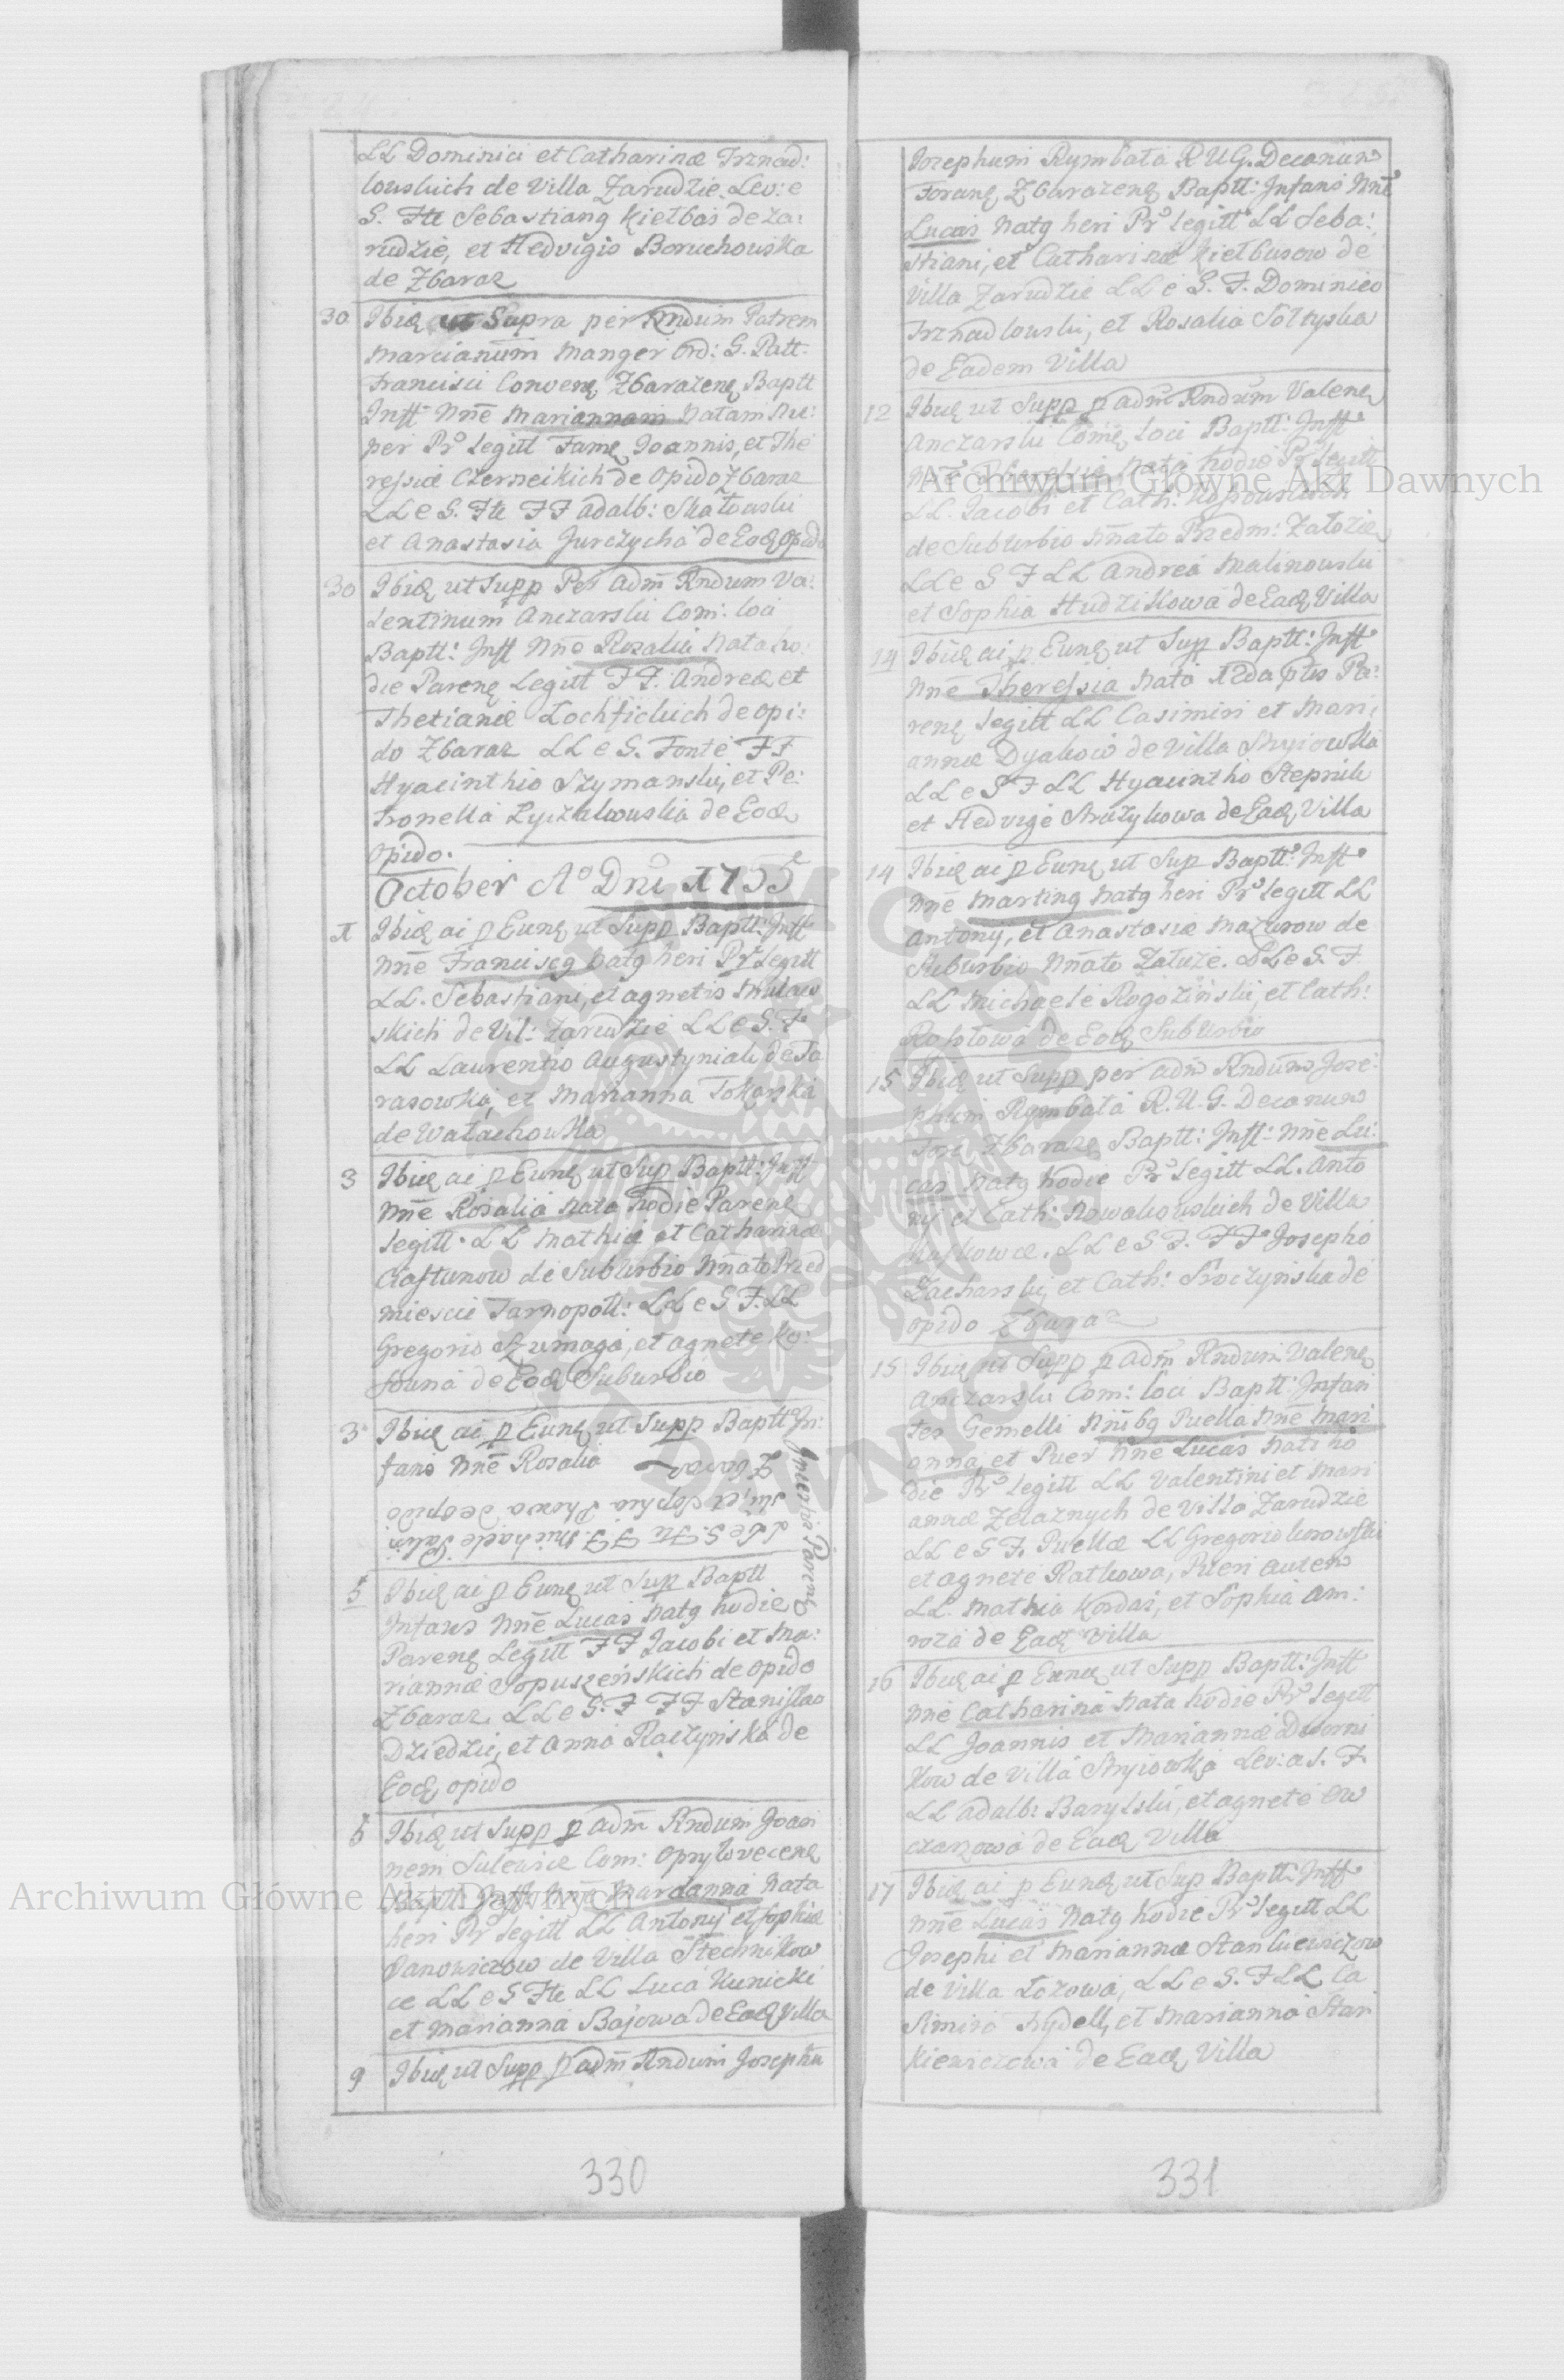 LL Dominici et Catharinæ Trznad:
lowskich de Villa Zarudzie. Lev: e
S. Fte Sebastianq Kiełbas de Za:
rudzie, et Hedvigis Boruchowska
de Zbaraz
30 Ibiđ ut Supra per Rndum Patrem
Marcianum Manger Ord: S. Patt.
Francisci Convenę Zbarazenę Baptt
Inft Nnē Mariannam Natam Nu:
per Pr̃ Legitt Famę Joannis, et The
ressiæ Czerneikich de Opido Zbaraz
LL e S. Fte FF Adalb: Skałowski
et Anastasia Jurczycha de Eodę Opido
30 Ibiđ ut Supp Per Adm̃ Rndum Va:
lentinum Anczarski Com: loci
Baptt: Inft Nnē Rosalia Nata ho:
die Parenę Legitt FF. Andreæ et
Thetianæ Łochfickich de Opi:
do Zbaraz LL e S. Fonte FF
Hyacinthio Szymanski, et Pe:
tronella Łyczkowska de Eodę
Opido.
October Aº Dni 1755
1 Ibiđ ai p Eunę ut Supp Baptt: Inft
Nnē Franciscq Natq heri Pr̃ Legitt
LL. Sebastiani, et Agnetis
skich de Vil: Zarudzie LL e S. F
LL Laurentio Augustyniak de Ta
rasowka, et Marianna Tokarska
de Wałachowka
3 Ibiđ ai p Eunę ut Sup Baptt: Inft
Nnē Rosalia Nata hodie Parenę
Legitt. LL Mathiæ et Catharinæ
Ciastunow de Suburbio Nnato Przed
miescie Tarnopoll: LL e S F. LL
Gregorio Szumaga, et Agnete Ko:
founa de Eodę Suburbio
3 Ibiđ ai p Eunę ut Supp Baptt In:
fans Nnē Rosalia
Incertis Parenę
LL e S. Fte FF. Michaele
ski, et Sophia de Opido
Zbaraz
5 Ibiđ ai p Eunę ut Sup Baptt
Infans Nnē Lucas Natq hodie
Parenę Legitt FF Jacobi et Ma:
riannæ Sopuszeńskich de Opido
Zbaraz. LL e S. F FF Stanislao
Dziedzic, et Anna Raczynska de
Eodę opido
6 Ibiđ ut Supp p Adm̃ Rndum Joan
nem Sulewicz Com: Opryłowecenę
Baptt Inft Nnē Marianna Nata
heri Pr̃ Legitt LL Antonij et Sophiæ
Janowiczow de Villa Stechnikow
ce LL e S Fte LL Luca Kunicki
et Marianna Bajowa de Eadę Villa
9 Ibiđ ut Supp p Adm̃ Rndum Josephu
330
Josephum Rymbała R U G. Decanum
Foranę Zbarazenę Baptt: Infans Nnē
Lucas Natq heri Pr̃ Legitt LL Seba:
stiani, et Catharinæ Kiełbasow de
Villa Zarudzie LL e S. F. Dominico
Trznadlowski, et Rosalia Sołtyska
de Eadem Villa
12 Ibiđ ut Supp p Adm̃ Rndum Valenę
Anczarski Comę Loci Baptt: Inft
Nnē Theressia Nata hodie Pr̃ Legitt
LL. Jacobi et Cath:
de Suburbio Nnato Przedm: Załozie
LL e S F LL Andrea Malinowski
et Sophia Hudzikowa de Eadę Villa
14 Ibiđ ai p Eunę ut Sup Baptt: Inft
Nnē Theressia Nata 12da ptis Pa:
renę Legitt LL Casimiri et Mari
annæ Dyakow de Villa Stryiowka
LL e S F LL Hyacintho Stepnik
et Hedvige Struzykowa de Eadę Villa
14 Ibiđ ai p Eunę ut Sup Baptt: Inft
Nnē Martinq Natq heri Pr̃ Legitt LL
Antonij, et Anastasiæ Mazurow de
Suburbio Nnato Załuze. LL e S. F
LL Michaele Rogoziński, et Cath:
Rohołowa de Eodę Suburbio
15 Ibiđ ut Supp per Adm̃ Rndum Jose:
phum Rymbała R. U. G. Decanum
Fora Zbaraze Baptt: Inft: Nnē Lu:
cas Natq hodie Pr̃ Legitt LL. Anto
nij et Cath: Nowakowskich de Villa
LL e S F. FF Josepho
Zacharski, et Cath: Sroczyńska de
opido Zbaraz
15 Ibiđ ut Supp p Adm̃ Rndum Valenę
Anczarski Com: loci Baptt: Infan
tes Gemelli Puella Nnē Mari
anna, et Puer Nnē Lucas Nati ho
die Pr̃ Legitt LL Valentini et Mari
annæ Zelaznych de Villa Zarudzie
LL e S F. Puellæ LL Gregorio
et Agnete Ratkowa, Pueri autem
LL. Mathia Kordas, et Sophia Am:
roza de Eadę Villa
16 Ibiđ ai p Eunę ut Supp Baptt: Inft
Nnē Catharina Nata hodie Pr̃ Legitt
LL Joannis et Mariannæ Dworni
kow de Villa Stryiowka Lev: a S. F.
LL Adalb: Barylski, et Agnete Ow
czarzowa de Eadę Villa
17 Ibiđ ai p Eunę ut Sup Baptt: Inft
Nnē Lucas Natq hodie Pr̃ Legitt LL
Josephi et Mariannæ Stankiewiczow
de Villa Łozowa, LL e S. F LL Ca
simiro Rydell, et Marianna Stan
kiewiczowa de Eadę Villa
331
Archiwum Główne Akt Dawnych
Archiwum Główne Akt Dawnych